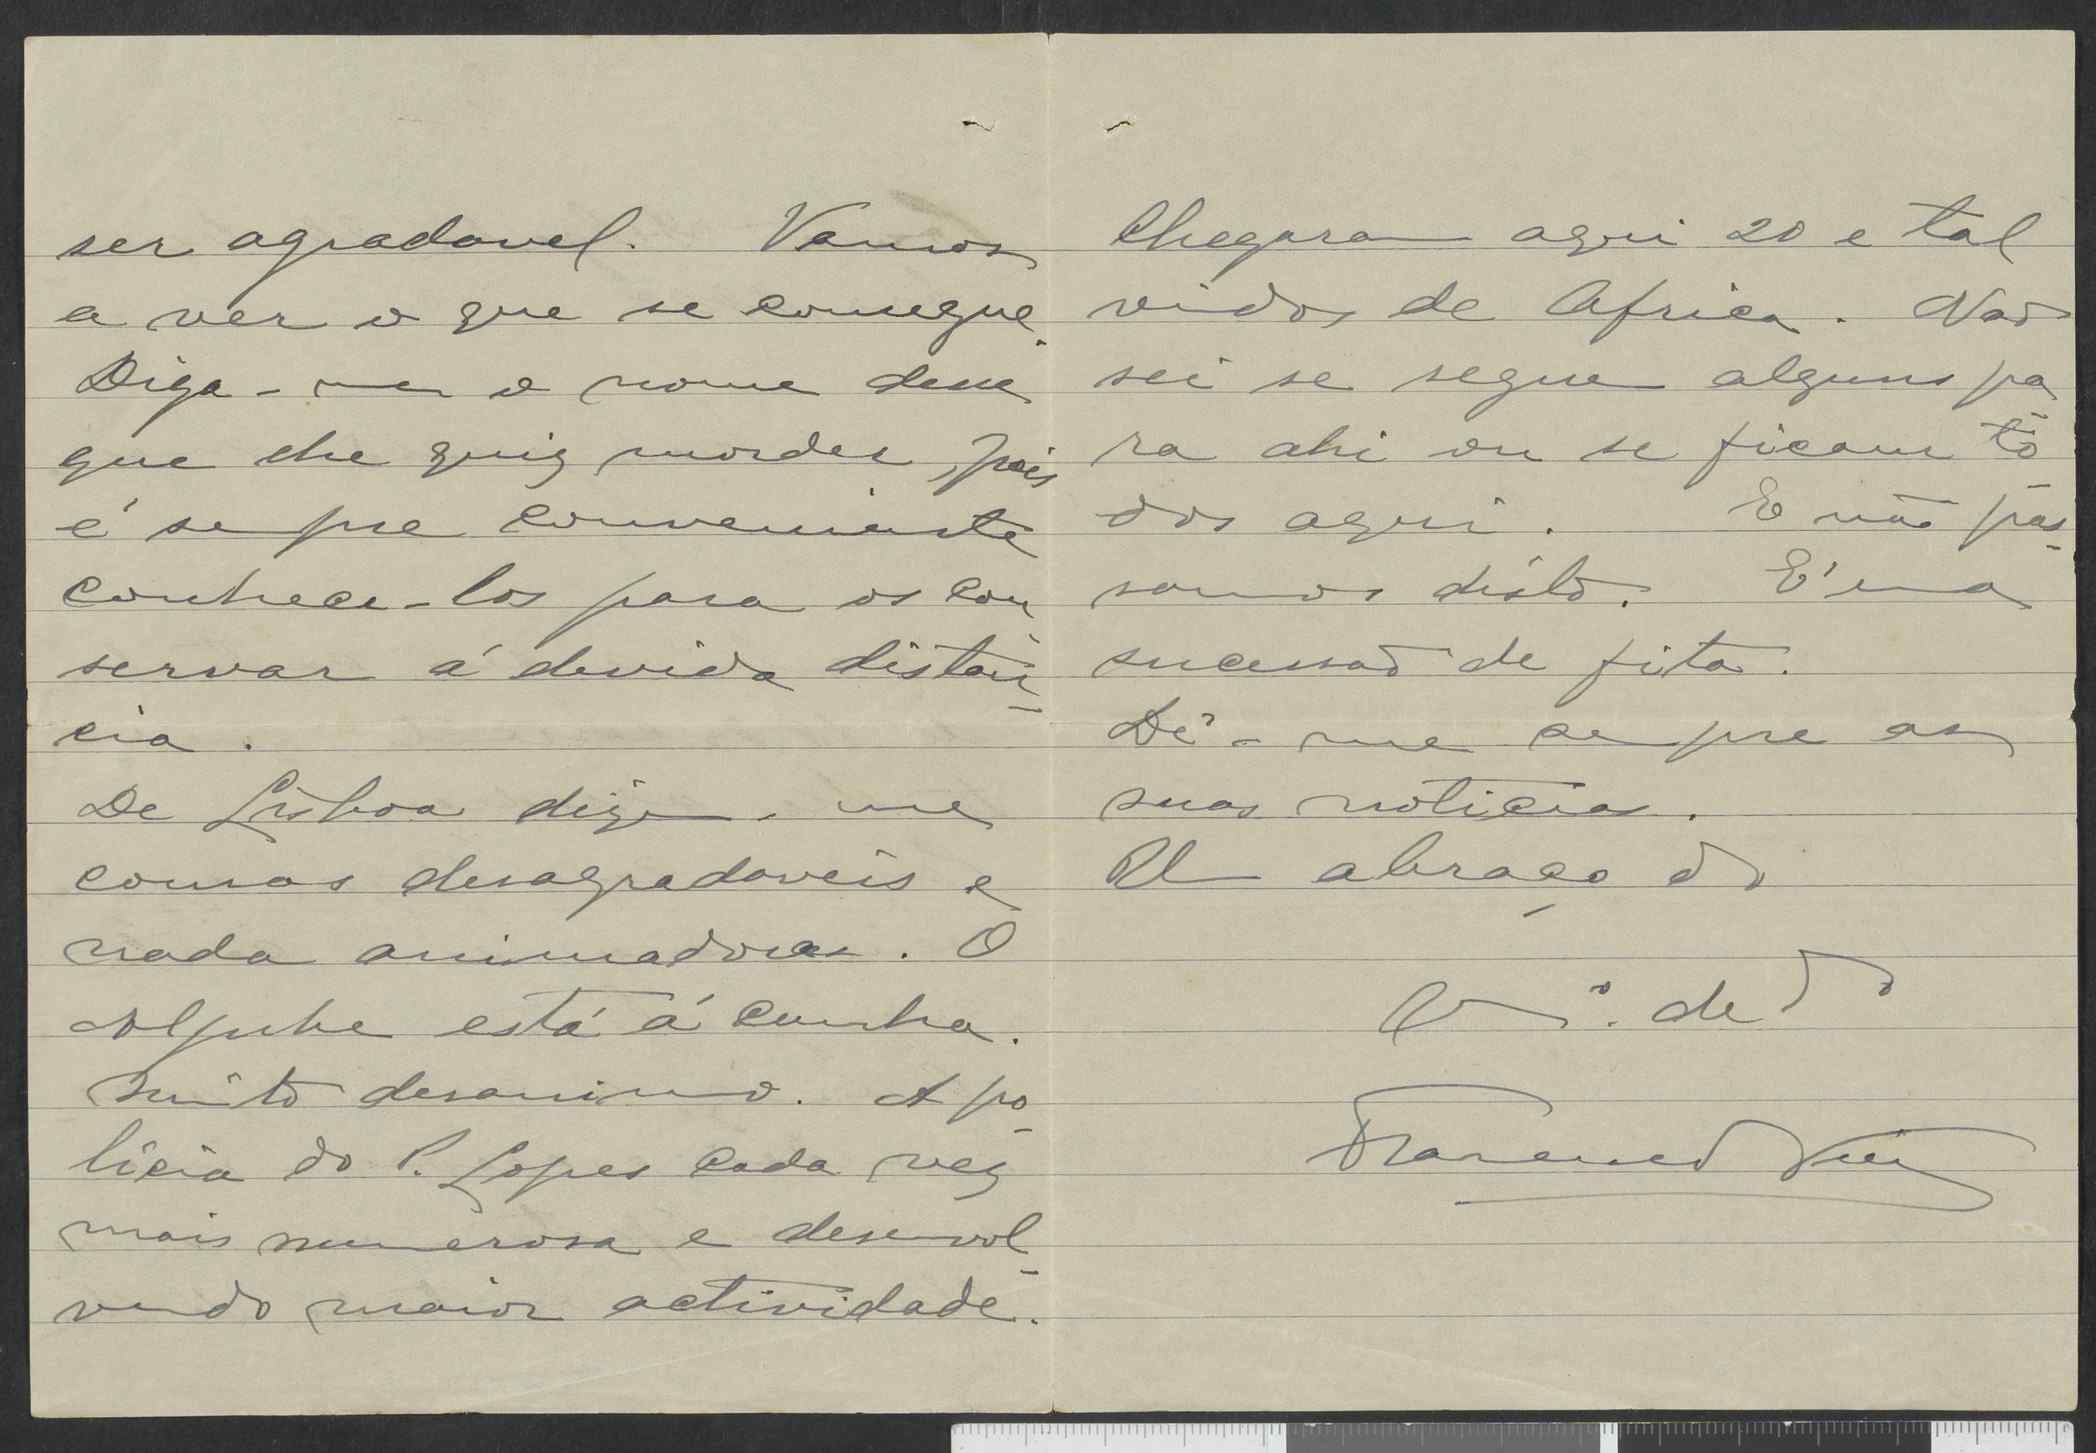 ser agradavel. Vamos
a ver o que se consegue.
Diga-me o nome desse
que lhe quiz morder, pois
é sempre conveniente
conhece-los para os con-
servar á devida distan-
cia.
De Lisboa dizem-me
cousas desagradaveis e
nada animadoras. O
aljube está á cunha.
Muito desanimo. A po-
licia do P. Lopes cada vez
mais numerosa e desenvol-
vendo maior actividade.
Chegaram aqui 20 e tal
vindos de Africa. Não
sei se seguem alguns pa-
ra ahi ou se ficam to-
dos aqui. E não pas-
samos disto. E' uma
sucessão de fita.
Dê-me sempre as
suas noticias.
Um abraço do
Am.º ded.º